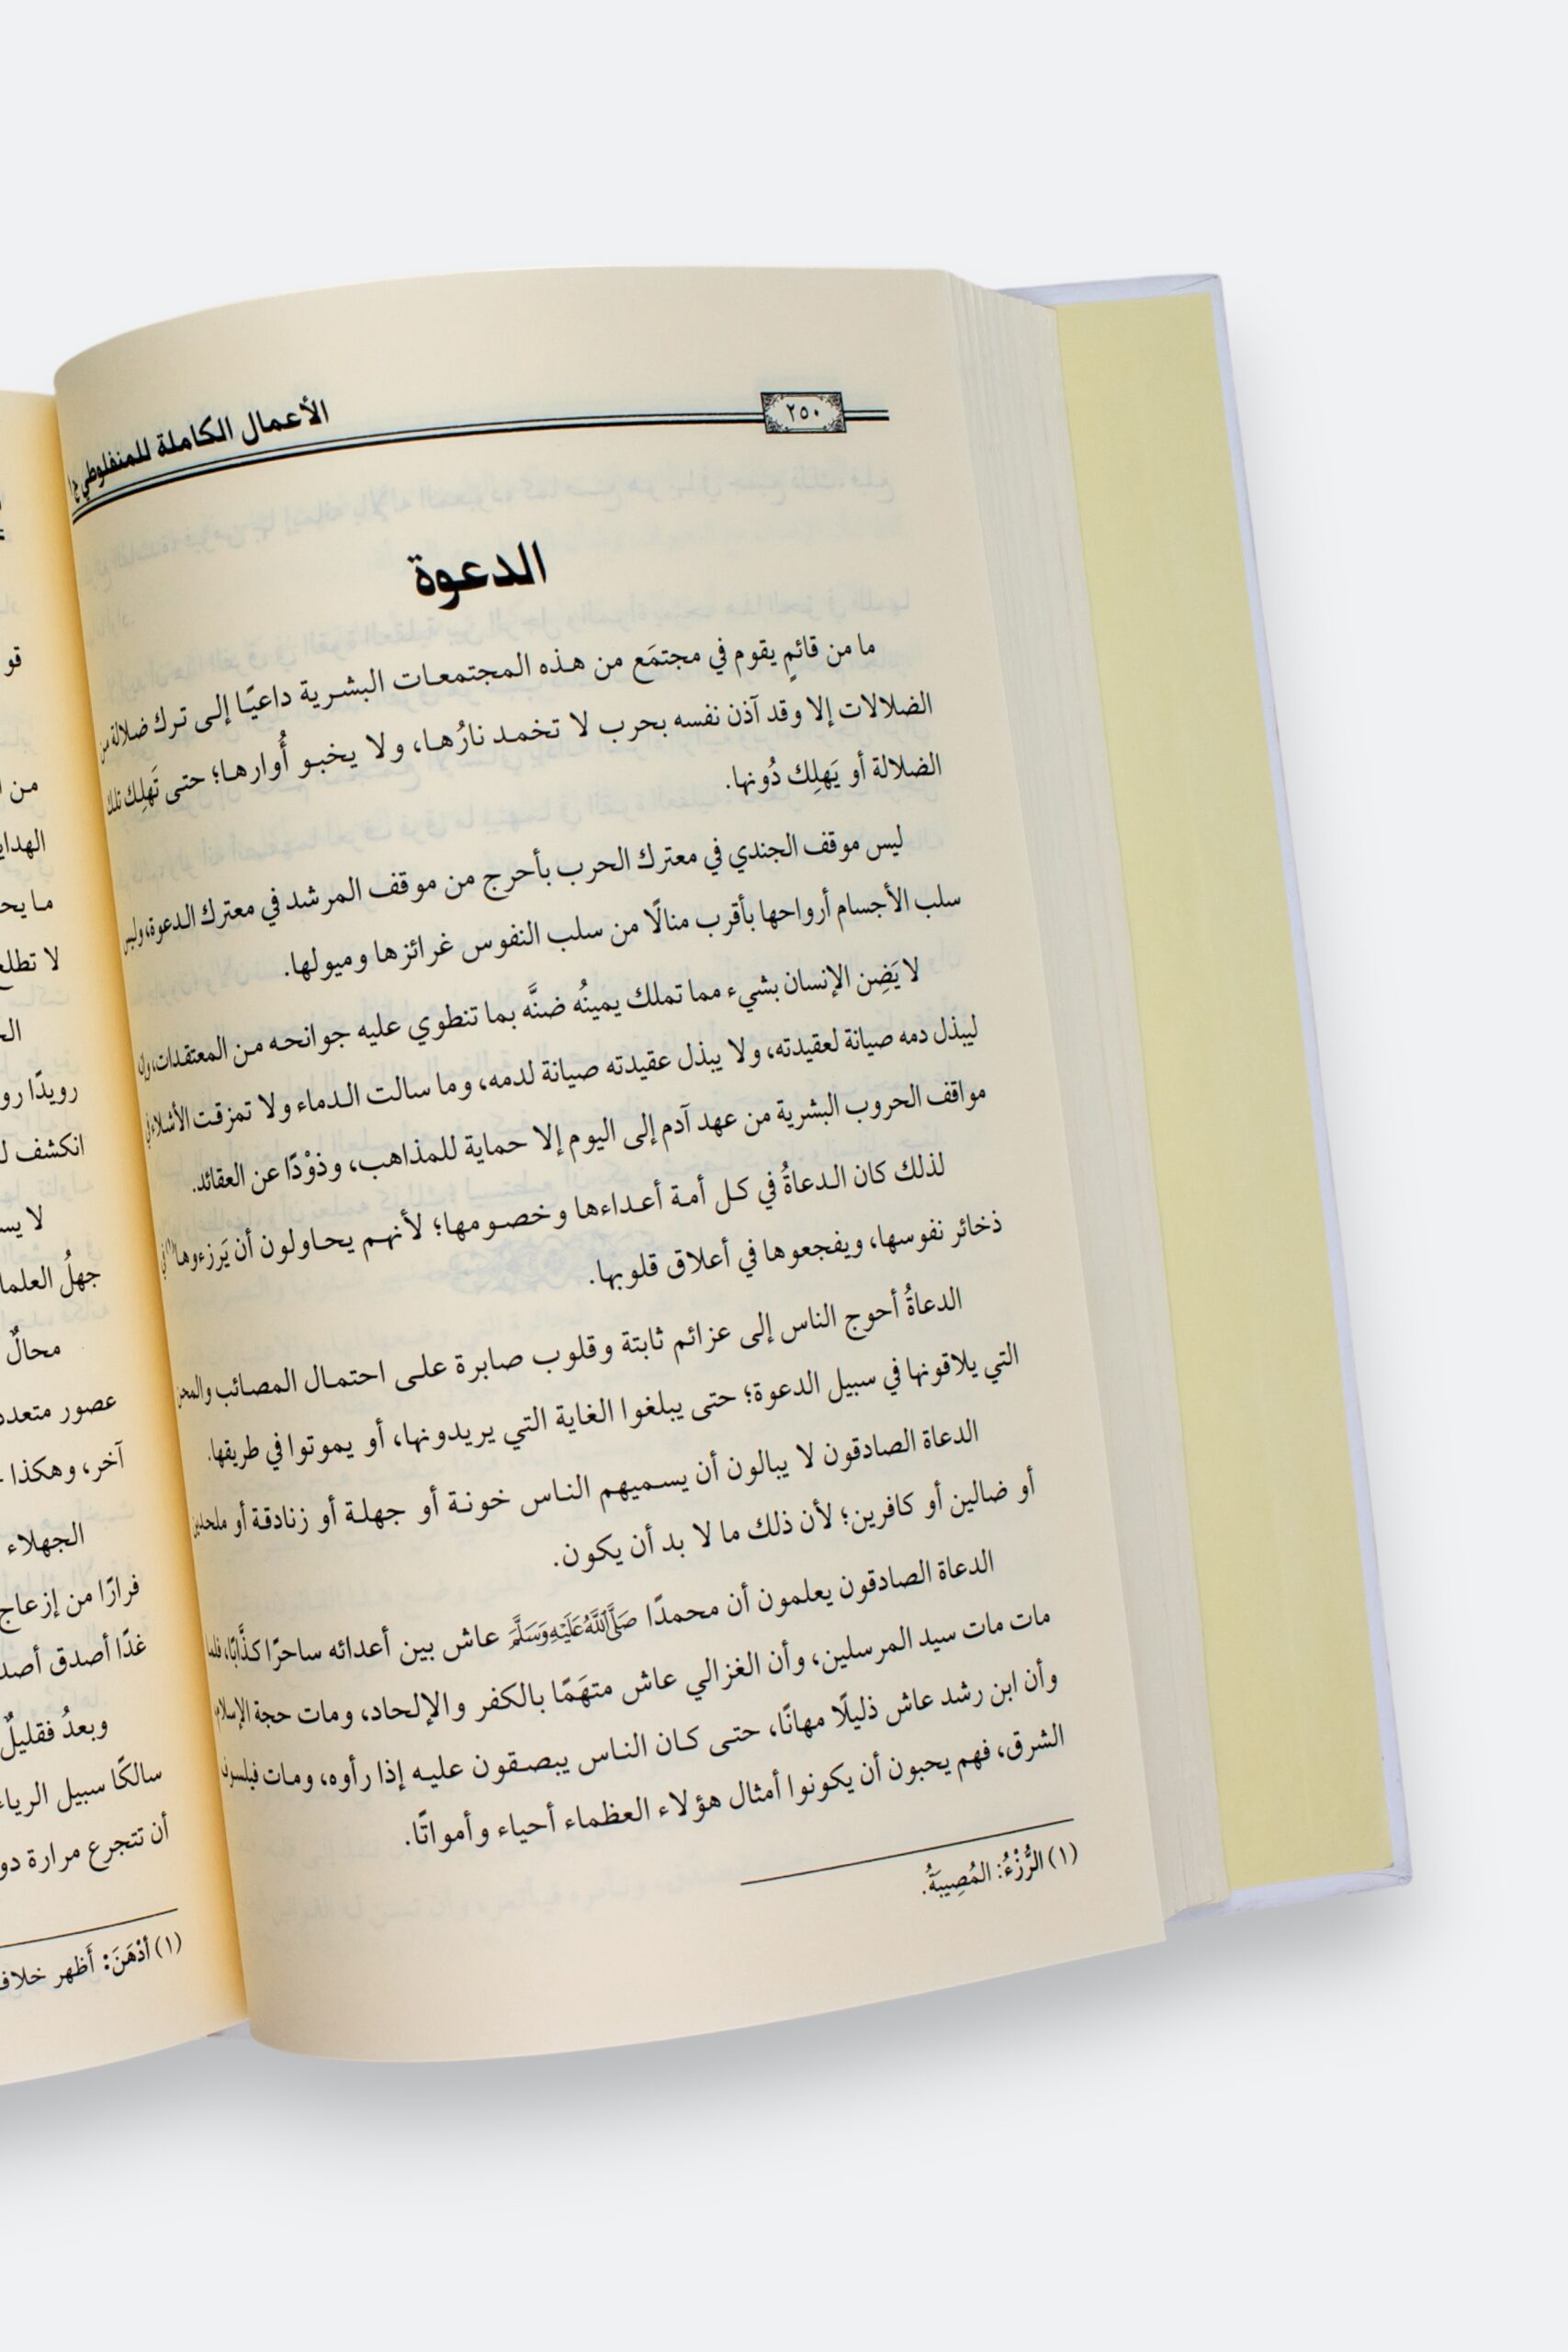 ٢٥٠
الأعمال الكاملة للمنفلوطي ج١
الدعوة
ما من قائمٍ يقوم في مجتمَع من هذه المجتمعات البشرية داعيًا إلى ترك ضلالة من
الضلالات إلا وقد آذن نفسه بحرب لا تخمد نارُها، ولا يخبو أُوارها؛ حتى تَهلِك تلك
الضلالة أو يَهلِك دُونها.
ليس موقف الجندي في معترك الحرب بأحرج من موقف المرشد في معترك الدعوة، وليس
سلب الأجسام أرواحها بأقرب منالًا من سلب النفوس غرائزها وميولها.
لا يَضِن الإنسان بشيء مما تملك يمينُه ضنَّه بما تنطوي عليه جوانحه من المعتقدات، وإنه
ليبذل دمه صيانة لعقيدته، ولا يبذل عقيدته صيانة لدمه، وما سالت الدماء ولا تمزقت الأشلاء في
مواقف الحروب البشرية من عهد آدم إلى اليوم إلا حماية للمذاهب، وذوْدًا عن العقائد.
لذلك كان الدعاةُ في كل أمة أعداءها وخصومها؛ لأنهم يحاولون أن يَرزءوها(١) في
ذخائر نفوسها، ويفجعوها في أعلاق قلوبها.
الدعاةُ أحوج الناس إلى عزائم ثابتة وقلوب صابرة على احتمال المصائب والمحن
التي يلاقونها في سبيل الدعوة؛ حتى يبلغوا الغاية التي يريدونها، أو يموتوا في طريقها.
الدعاة الصادقون لا يبالون أن يسميهم الناس خونة أو جهلة أو زنادقة أو ملحدين
أو ضالين أو كافرين؛ لأن ذلك ما لا بد أن يكون.
الدعاة الصادقون يعلمون أن محمدًا صَلَّى اللَّهُ عَلَيْهِ وَسَلَّمَ عاش بين أعدائه ساحرًا كذَّابًا، فلما
مات مات سيد المرسلين، وأن الغزالي عاش متهَمًا بالكفر والإلحاد، ومات حجة الإسلام،
وأن ابن رشد عاش ذليلًا مهانًا، حتى كان الناس يبصقون عليه إذا رأوه، ومات فيلسوف
الشرق، فهم يحبون أن يكونوا أمثال هؤلاء العظماء أحياء وأمواتًا.
(١) الرُّزْءُ: المُصِيبَةُ.
قو
من
ما يح
رويدًا رو
انكشف
جهلُ العلما
محالٌ
عصور متعدد
آخر، وهكذا
الجهلاء
فرارًا من إزعاج
غدًا أصدق أصد
وبعدُ فقليلٌ
سالكًا سبيل الرياء
أن تتجرع مرارة دو
(١) أدْهَنَ: أَظهر خلاف